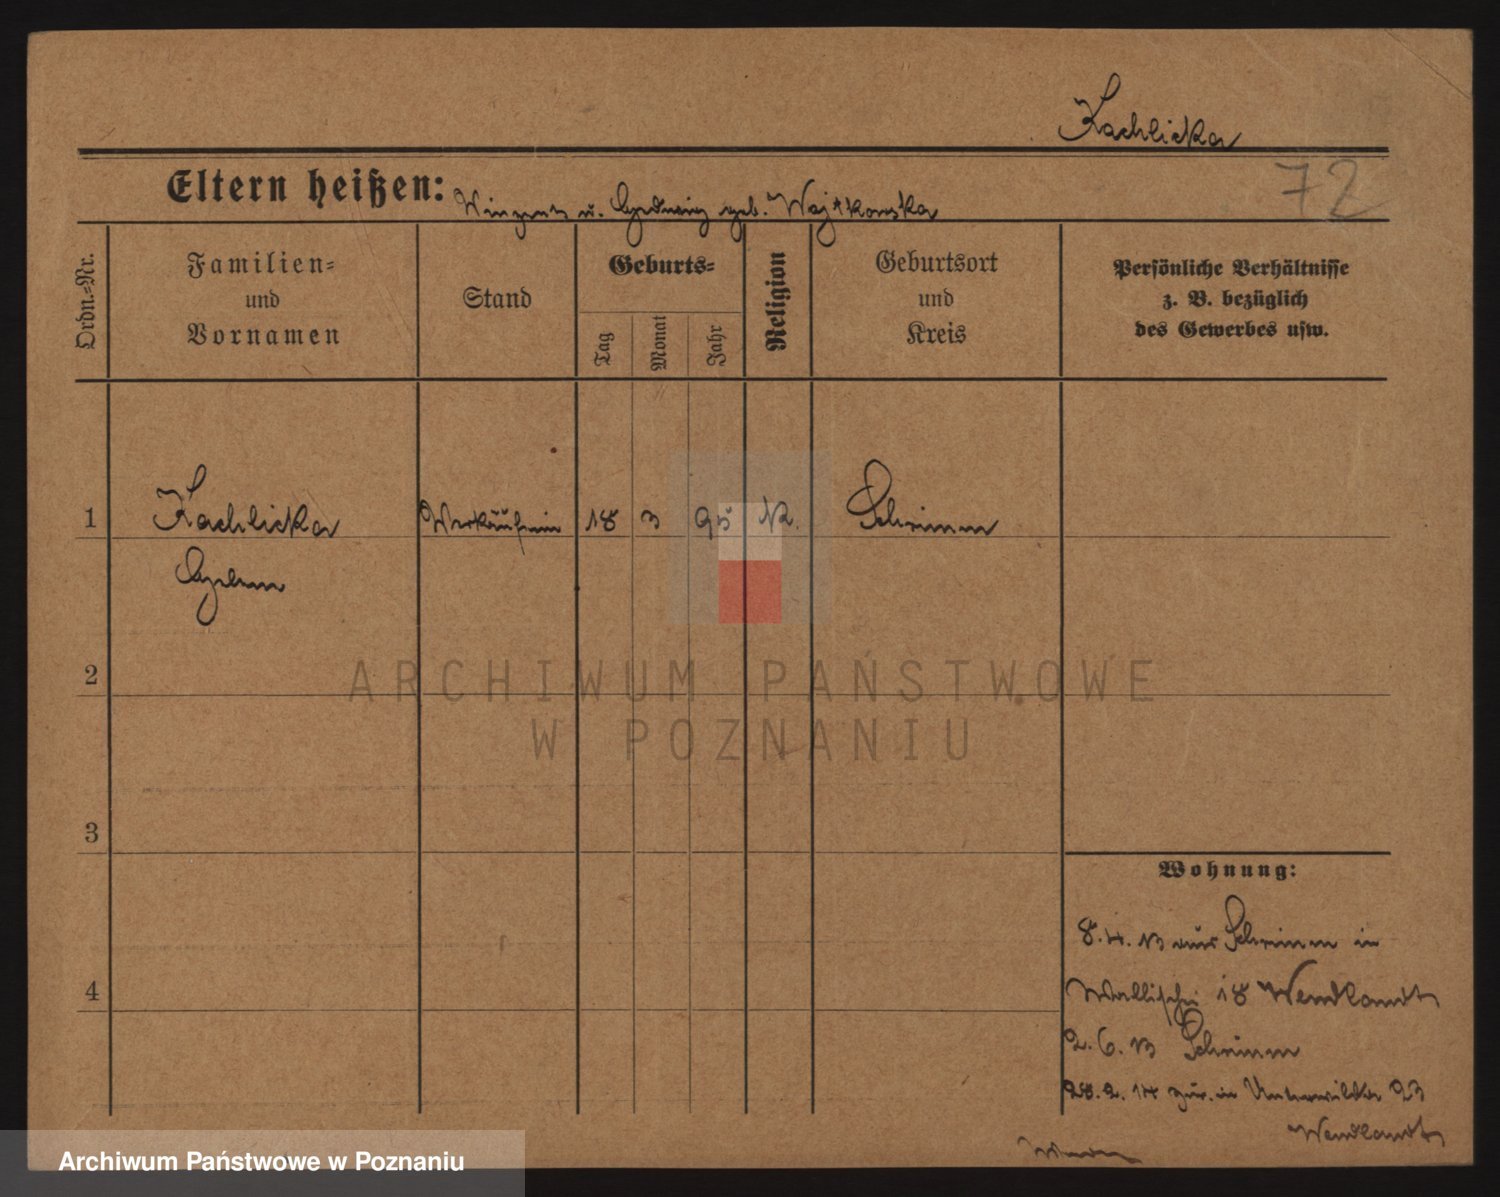 Kachlicka
72
Eltern heißen: Winzent u. Hedwig geb. Wojtkowska
Ordn.=Nr.
Familien=
und
Vornamen
Stand
Geburts=
Tag
Monat
Jahr
Religion
Geburtsort
und
Kreis
Persönliche Verhältnisse
z. B. bezüglich
des Gewerbes usw.
1 Kachlicka Verkäuferin 18 3 95 K. Schrimm
Helene
2
ARCHIWUM PAŃSTWOWE
W POZNANIU
3
Wohnung:
8.4.13 aus Schrimm in
4
Wallischei 18 Wendlandt
2.6.13 Schrimm
28.2.14 zur. in Unterwilda 23
Wendlandt
Archiwum Państwowe w Poznaniu